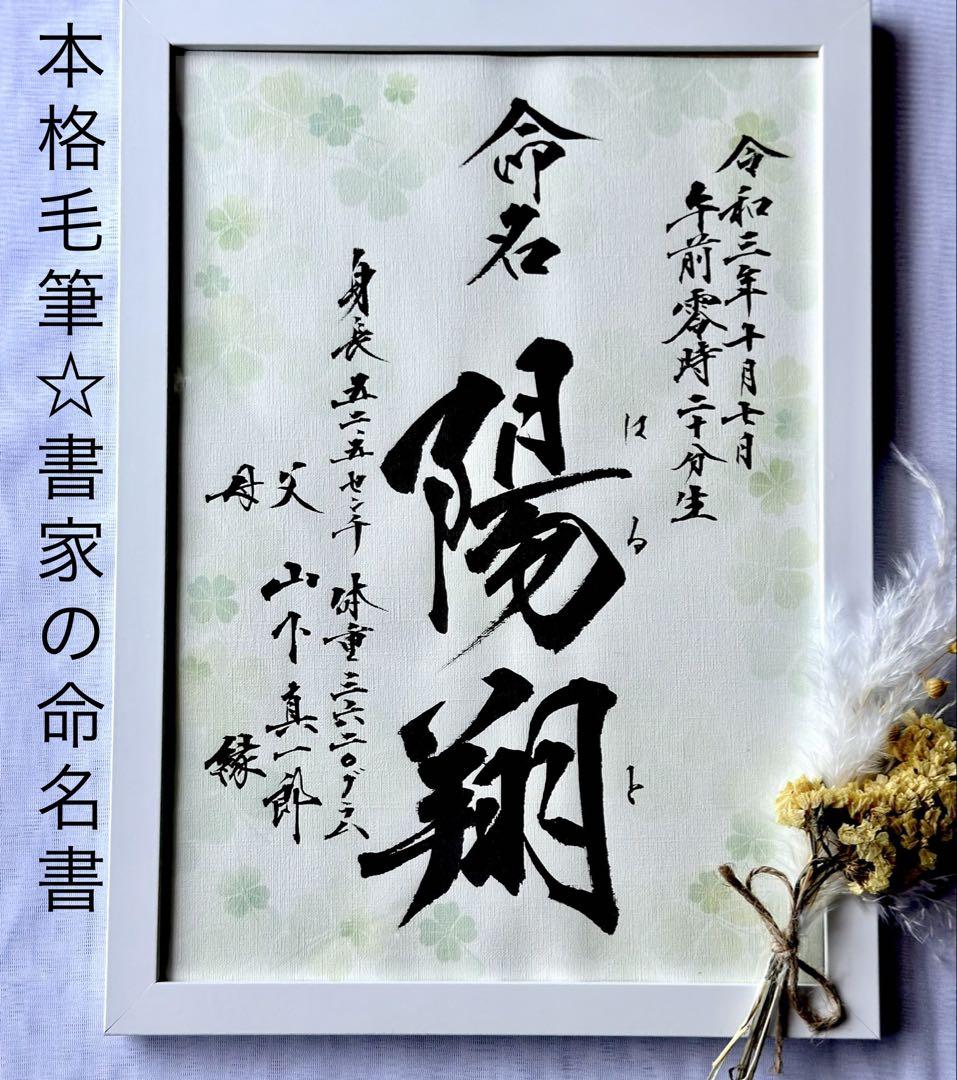 本格毛筆☆書家の命名書
令和三年十月七日
午前零時二十分生
命名 陽翔
はると
身長 五二.五センチ 体重三六二〇グラム
父 山下真一郎
母 縁